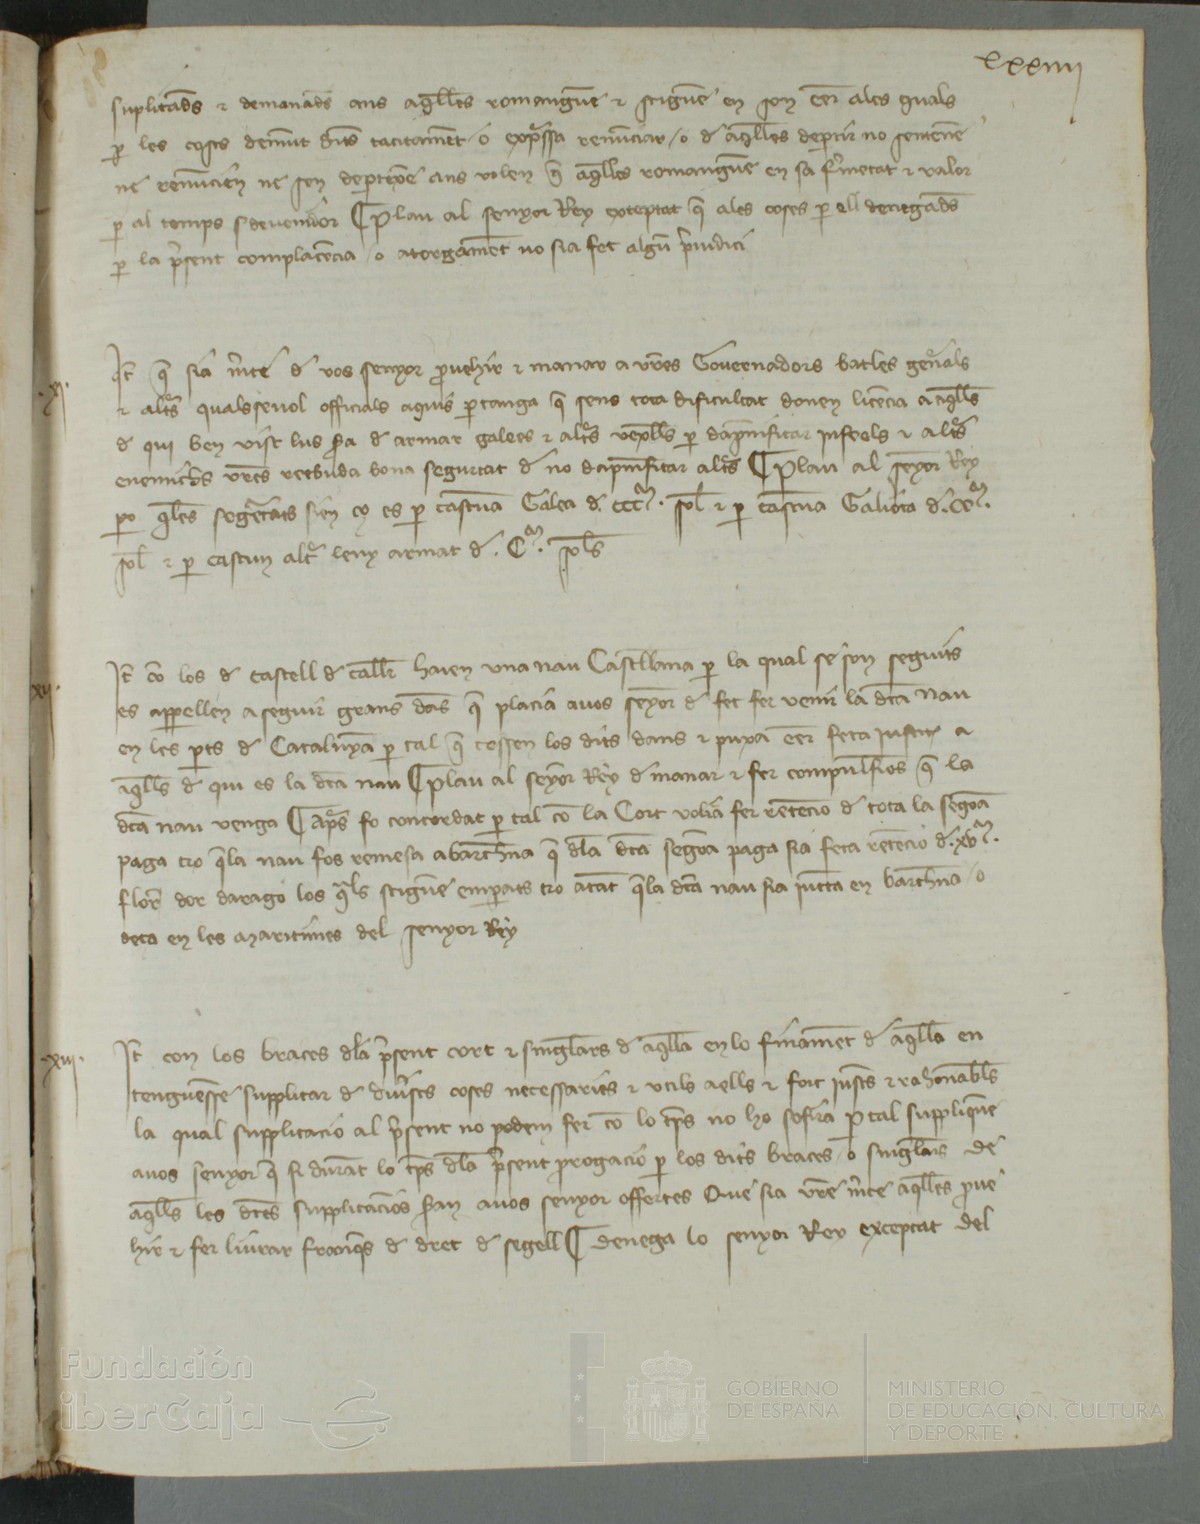 lxxxiiii
suplicads e demanads ans aqlles romanguen e stiguen en son eer ales quals
p les coses demut dits tacitament o expssa renunciar o d aqlles deptir no sentenen
ne renuncien ne sen deptexen ans volen q aqlles romanguen en sa fmetat e valor
p al temps sdevenidor ¶ Plau al senyor Rey exceptat q ales coses p ell denegads
p la psent complacencia o atorgament no sia fet algun piudici
.xi. Itm q sia mce d vos senyor pvehir e manar a vres Governadors batles genals
e altrs qualsevol officials aquis ptanga q sens tota dificultat donen licencia a aqlls
d qui ben vist lus sra d armar galees e altrs vexlls p dapnificar infeels e altrs
enemichs vres reebuda bona seguretat d no dapnificar altrs ¶ Plau al senyor Rey
po qles segretats sien ço es p cascuna Galea d. CCCm. sol e p cascuna Galiota d. CCm.
sol e p cascun altr leny armat d. Cm. sols
.xii. Itm co los d castell d callr haien una nau Castellana p la qual se son seguits
es appellen a seguir grans dans q placia a vos senyor d fet fer venir la dca nau
en les pts d Catalunya p tal q cessen los dits dans e puxa eer feta justic a
aqlls d qui es la dca nau ¶ Plau al senyor Rey d manar e fer compulsios q la
dca nau venga ¶ Aps fo concordat p tal co la Cort volia fer retencio d tota la segona
paga tro qla nau fos remesa a barchna q dla dca segona paga sia feta retencio d. xvm.
florns dor darago los qals stiguen empats tro atant qla dca nau sia juncta en barchna o
deça en les maritimes del senyor Rey
.xiii. Itm con los braces dla psent cort e singlars d aqlla en lo finament d aqlla en
tenguessen supplicar d divses coses necessaries e utils a ells e fort justs e rahonabls
la qual supplicacio al psent no podem fer co lo tps no ho sofira P tal suppliquen
a vos senyor q si durant lo tps dla psent progacio p los dits braces o singlars de
aqlls les dces supplicacios sran a vos senyor offertes Que sia vre mce aqlles prve
hir e fer liurar franqs d dret d segell ¶ denega lo senyor Rey exceptat del
Fundación
iberCaja
GOBIERNO
DE ESPAÑA
MINISTERIO
DE EDUCACIÓN, CULTURA
Y DEPORTE